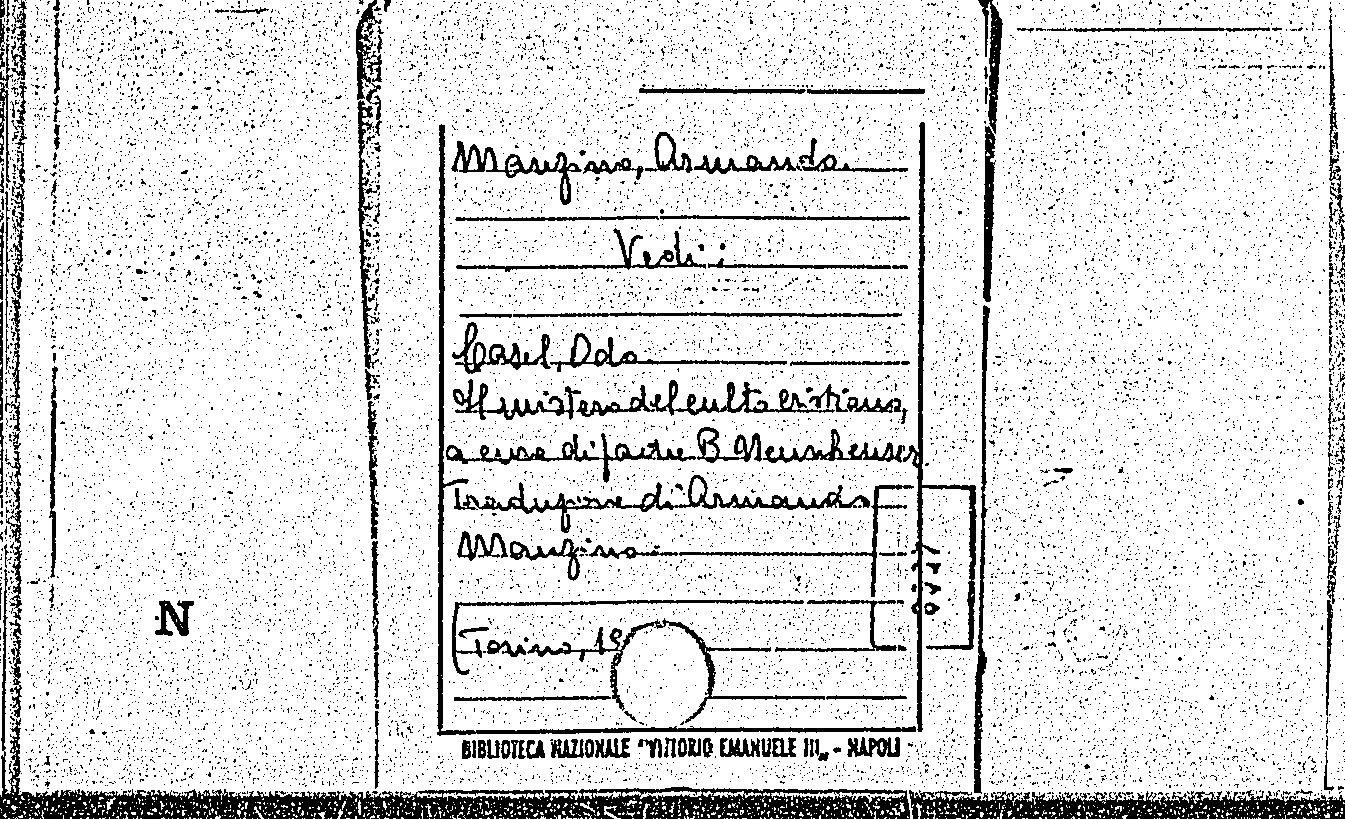 Manzino, Armando.
Vedi:
Casel, Odo
Il mistero del culto cristiano,
a cura di padre B. Neunheuser
Traduzione di Armando
Manzino.
N
[Torino, 19
BIBLIOTECA NAZIONALE "VITTORIO EMANUELE III„ - NAPOLI